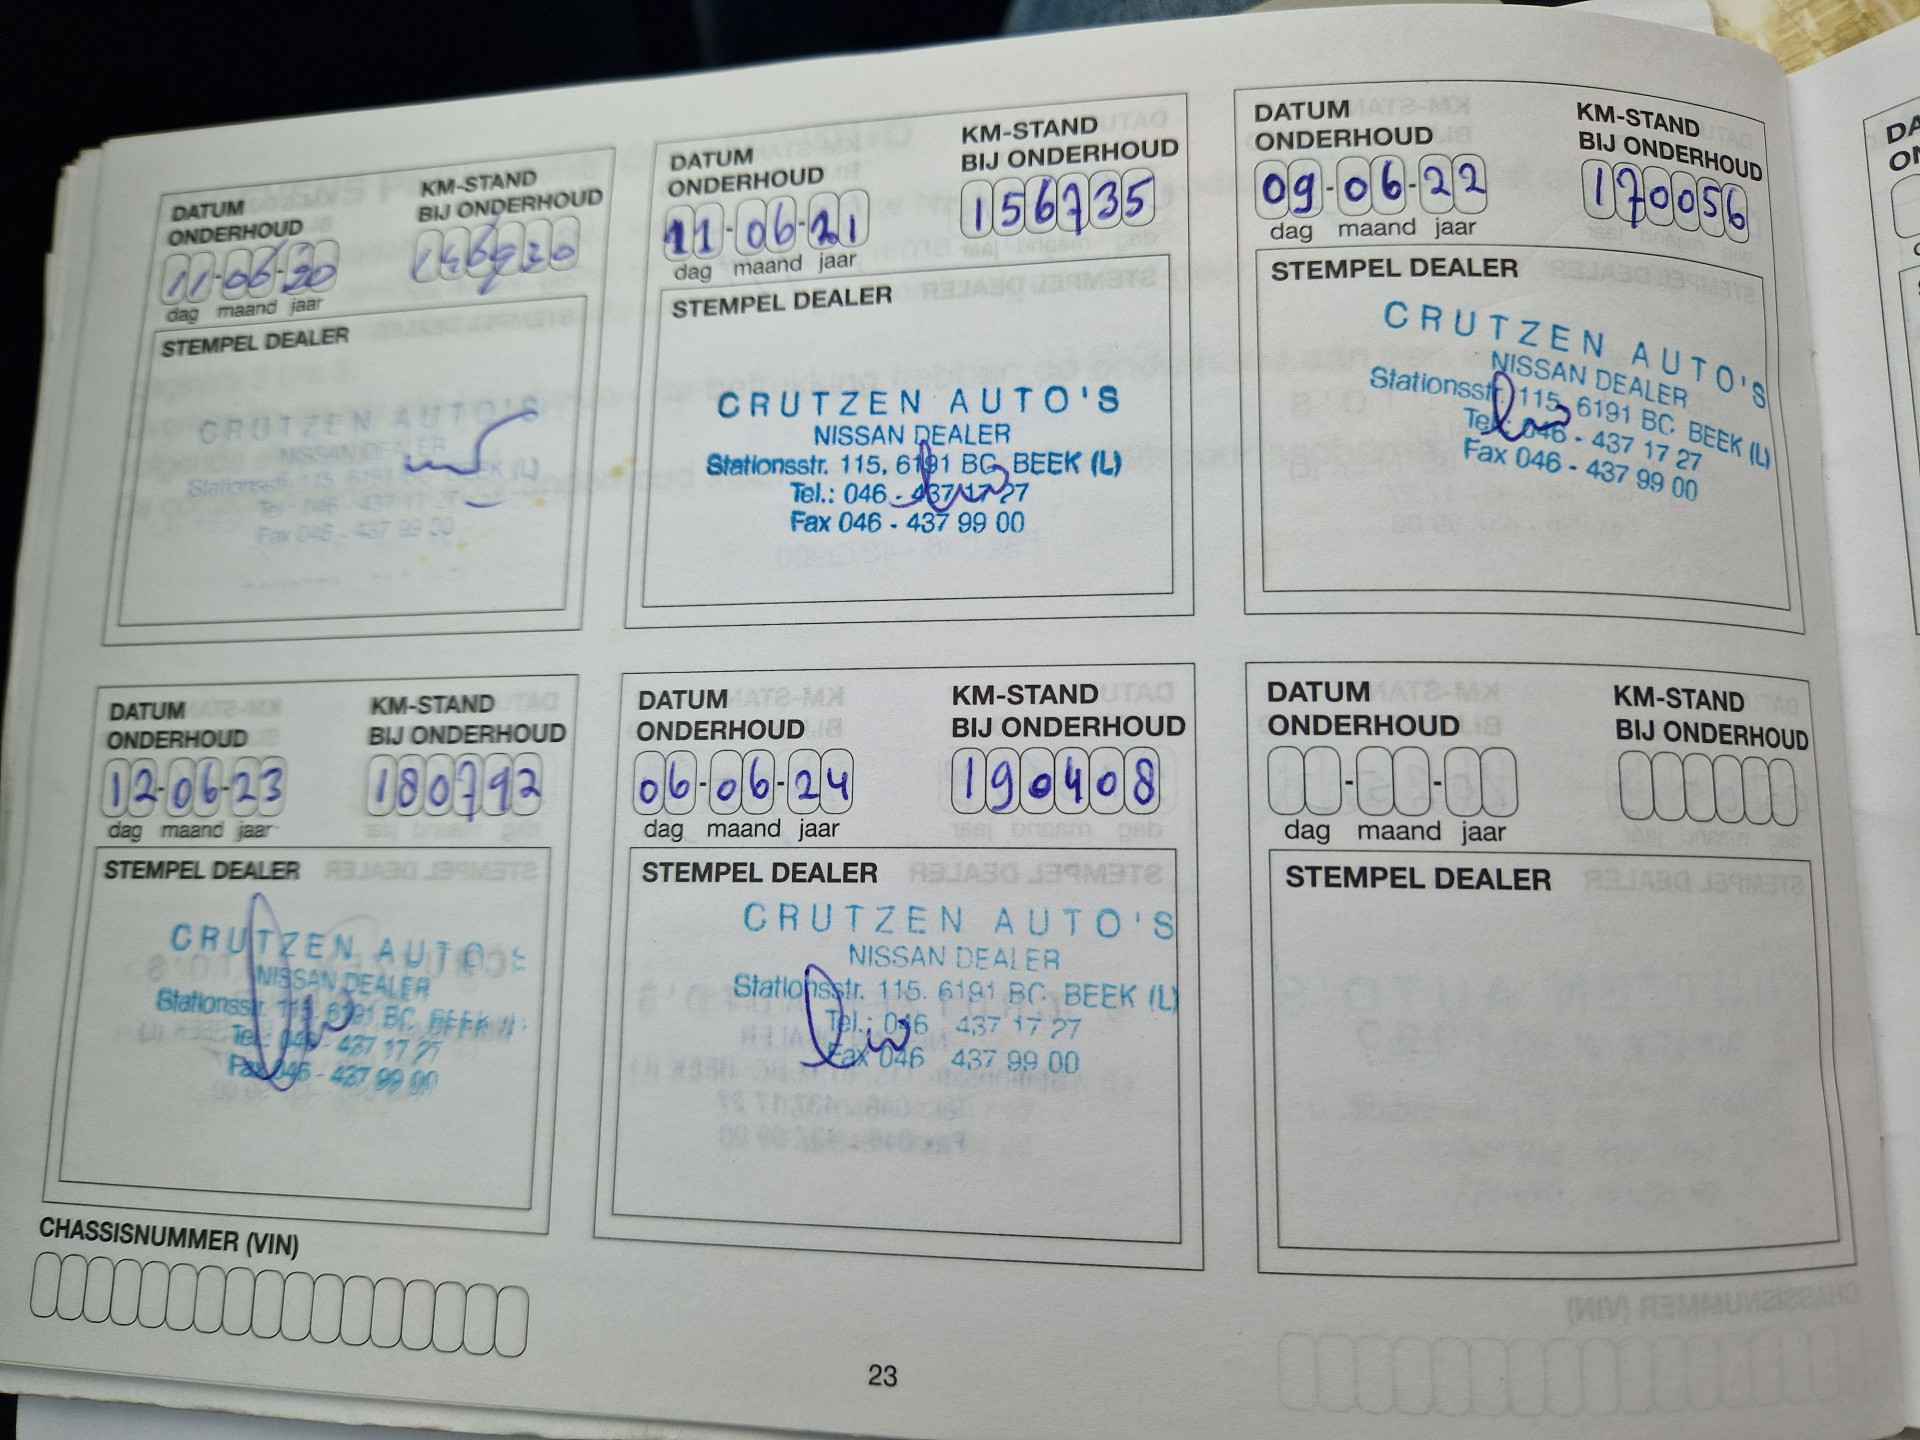 DATUM
ONDERHOUD
KM-STAND
BIJ ONDERHOUD
11-06-20
dag maand jaar
STEMPEL DEALER
CRUTZEN AUTO'S
NISSAN DEALER
Stationsstr. 115, 6191 BC BEEK (L)
Tel.: 046 - 437 17 27
Fax 046 - 437 99 00
DATUM
ONDERHOUD
KM-STAND
BIJ ONDERHOUD
11-06-21
156735
dag maand jaar
STEMPEL DEALER
CRUTZEN AUTO'S
NISSAN DEALER
Stationsstr. 115, 6191 BC BEEK (L)
Tel.: 046 - 437 17 27
Fax 046 - 437 99 00
DATUM
ONDERHOUD
KM-STAND
BIJ ONDERHOUD
09-06-22
170056
dag maand jaar
STEMPEL DEALER
CRUTZEN AUTO'S
NISSAN DEALER
Stationsstr. 115, 6191 BC BEEK (L)
Tel.: 046 - 437 17 27
Fax 046 - 437 99 00
DATUM
ONDERHOUD
KM-STAND
BIJ ONDERHOUD
12-06-23
180792
dag maand jaar
STEMPEL DEALER
CRUTZEN AUTO'S
NISSAN DEALER
Stationsstr. 115, 6191 BC BEEK (L)
Tel.: 046 - 437 17 27
Fax 046 - 437 99 00
DATUM
ONDERHOUD
KM-STAND
BIJ ONDERHOUD
06-06-24
190408
dag maand jaar
STEMPEL DEALER
CRUTZEN AUTO'S
NISSAN DEALER
Stationsstr. 115. 6191 BC BEEK (L)
Tel.: 046 437 17 27
Fax 046 437 99 00
DATUM
ONDERHOUD
KM-STAND
BIJ ONDERHOUD
dag maand jaar
STEMPEL DEALER
CHASSISNUMMER (VIN)
23